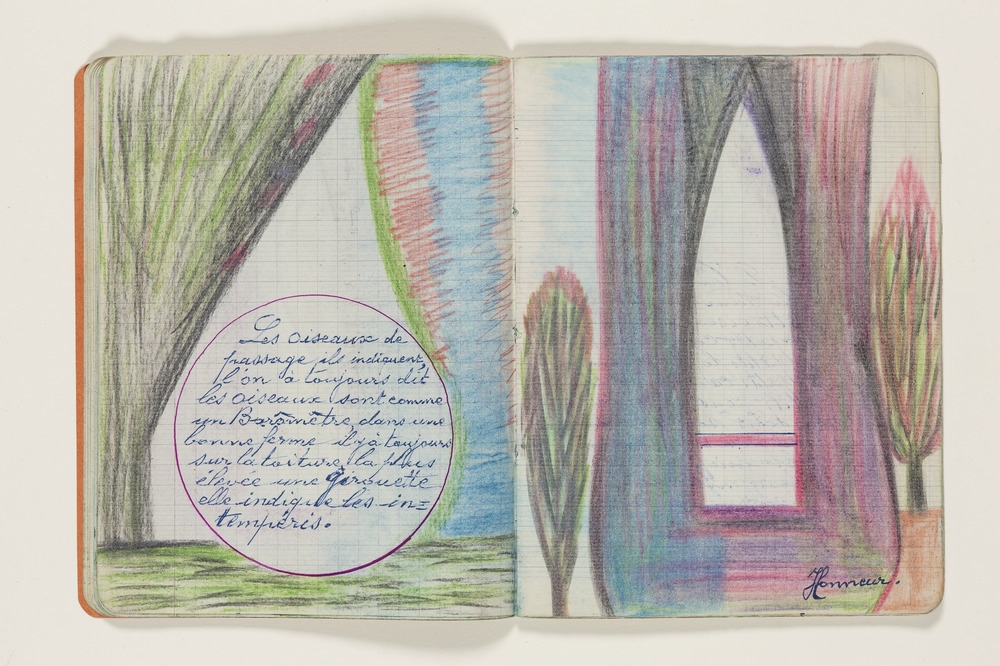 Les oiseaux de
passage ils indiquent,
l'on a toujours dit
les oiseaux sont comme
un Baromètre, dans une
bonne ferme il y à toujours
sur la toiture, la plus
élevée une girouette
elle indique les in=
tempéris.
Honneur.